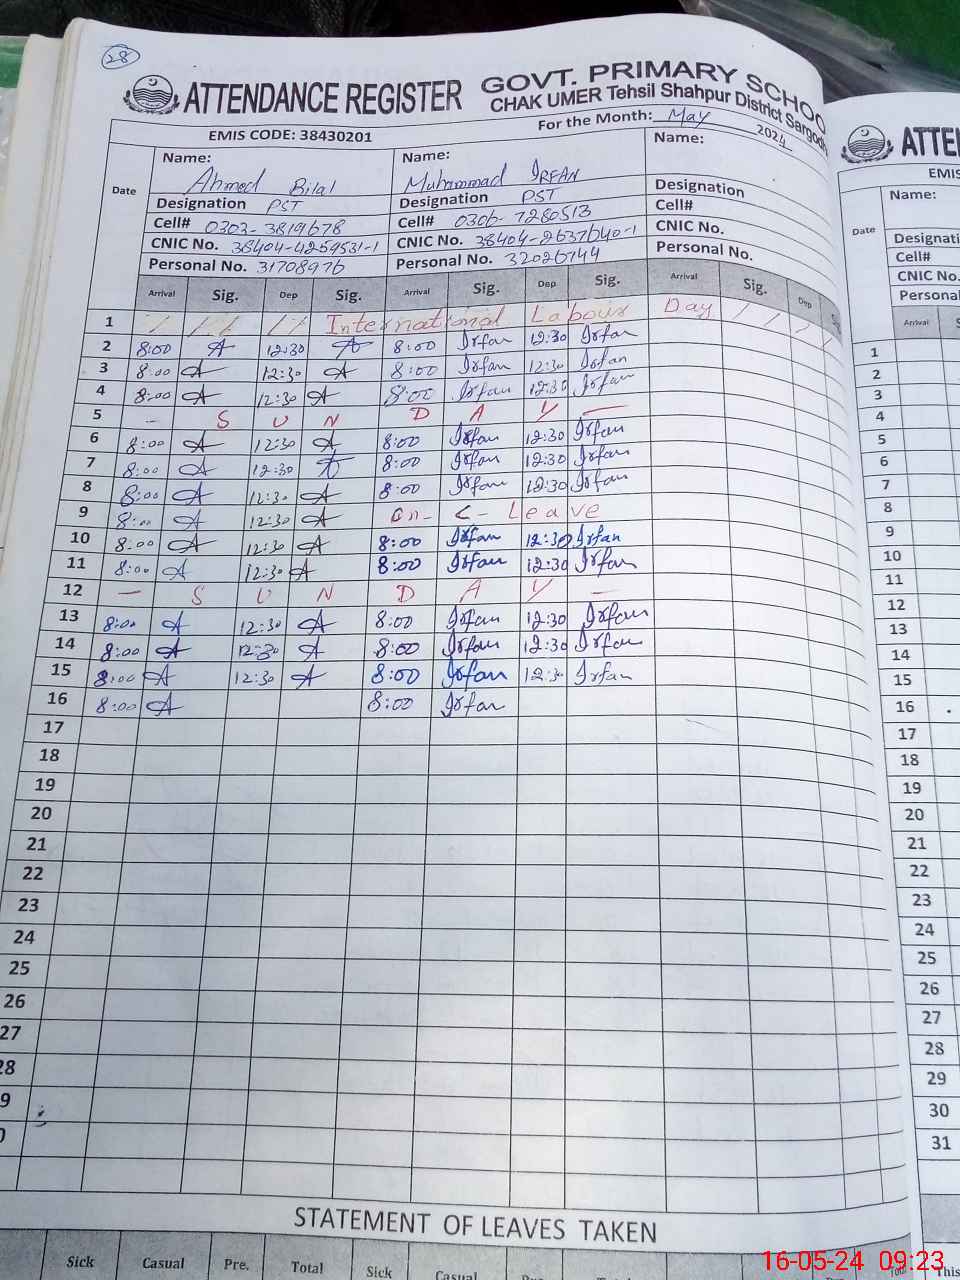 28
ATTENDANCE REGISTER GOVT. PRIMARY SCHOO
CHAK UMER Tehsil Shahpur District Sargod
EMIS CODE: 38430201 For the Month: May 2024
Date Name: Name: Name:
Ahmed Bilal Muhammad IRFAN
Designation PST Designation PST Designation
Cell# 0303-3819678 Cell# 0306-7280513 Cell#
CNIC No. 38404-4269531-1 CNIC No. 38404-2637640-1 CNIC No.
Personal No. 31708976 Personal No. 32026744 Personal No.
Arrival Sig. Dep Sig. Arrival Sig. Dep Sig. Arrival Sig. Dep Sig.
1 International Labour Day
2 8:00 A 12:30 A 8:00 Irfan 12:30 Irfan
3 8:00 A 12:30 A 8:00 Irfan 12:30 Irfan
4 8:00 A 12:30 A 8:00 Irfan 12:30 Irfan
5 - S U N D A Y -
6 8:00 A 12:30 A 8:00 Irfan 12:30 Irfan
7 8:00 A 12:30 A 8:00 Irfan 12:30 Irfan
8 8:00 A 12:30 A 8:00 Irfan 12:30 Irfan
9 8:00 A 12:30 A On- C- Leave
10 8:00 A 12:30 A 8:00 Irfan 12:30 Irfan
11 8:00 A 12:30 A 8:00 Irfan 12:30 Irfan
12 - S U N D A Y -
13 8:00 A 12:30 A 8:00 Irfan 12:30 Irfan
14 8:00 A 12:30 A 8:00 Irfan 12:30 Irfan
15 8:00 A 12:30 A 8:00 Irfan 12:30 Irfan
16 8:00 A 8:00 Irfan
17
18
19
20
21
22
23
24
25
26
27
28
9
0
STATEMENT OF LEAVES TAKEN
Sick Casual Pre. Total Sick Casual Pre. Total
ATTEN
EMIS
Name:
Date
Designati
Cell#
CNIC No.
Personal
Arrival S
1
2
3
4
5
6
7
8
9
10
11
12
13
14
15
16
17
18
19
20
21
22
23
24
25
26
27
28
29
30
31
This
16-05-24 09:23